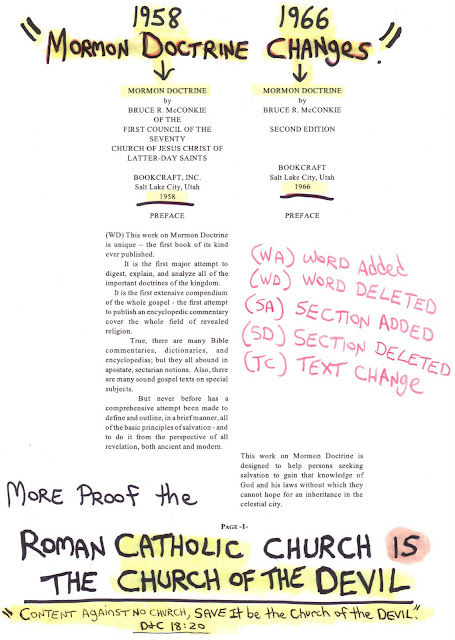 1958 1966
"MORMON DOCTRINE CHANGES."
MORMON DOCTRINE
by
BRUCE R. McCONKIE
OF THE
FIRST COUNCIL OF THE
SEVENTY
CHURCH OF JESUS CHRIST OF
LATTER-DAY SAINTS
BOOKCRAFT, INC.
Salt Lake City, Utah
1958
PREFACE
MORMON DOCTRINE
by
BRUCE R. McCONKIE
SECOND EDITION
BOOKCRAFT
Salt Lake City, Utah
1966
PREFACE
(WD) This work on Mormon Doctrine
is unique – the first book of its kind
ever published.
It is the first major attempt to
digest, explain, and analyze all of the
important doctrines of the kingdom.
It is the first extensive compendium
of the whole gospel - the first attempt
to publish an encyclopedic commentary
covering the whole field of revealed
religion.
True, there are many Bible
commentaries, dictionaries, and
encyclopedias; but they all abound in
apostate, sectarian notions. Also, there
are many sound gospel texts on special
subjects.
But never before has a
comprehensive attempt been made to
define and outline, in a brief manner, all
of the basic principles of salvation - and
to do it from the perspective of all
revelation, both ancient and modern.
(WA) WORD Added
(WD) WORD DELETED
(SA) SECTION ADDED
(SD) SECTION DELETED
(TC) TEXT CHANGE
This work on Mormon Doctrine is
designed to help persons seeking
salvation to gain that knowledge of
God and his laws without which they
cannot hope for an inheritance in the
celestial city.
MORE PROOF the
PAGE -1-
ROMAN CATHOLIC CHURCH IS
THE CHURCH OF THE DEVIL
"CONTENT AGAINST NO CHURCH, SAVE It be the Church of the DEVIL."
D+C 18:20